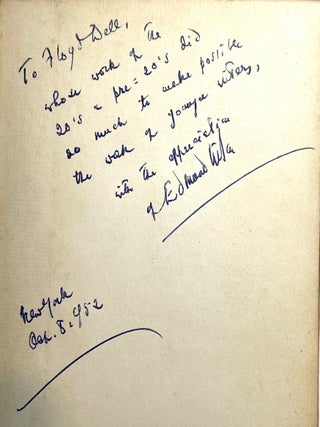 To Floyd Dell,
whose work of the
20's & pre-20's did
so much to make possible
the work of younger writers,
with the appreciation
of Edmond
New York
Oct. 8, 1952